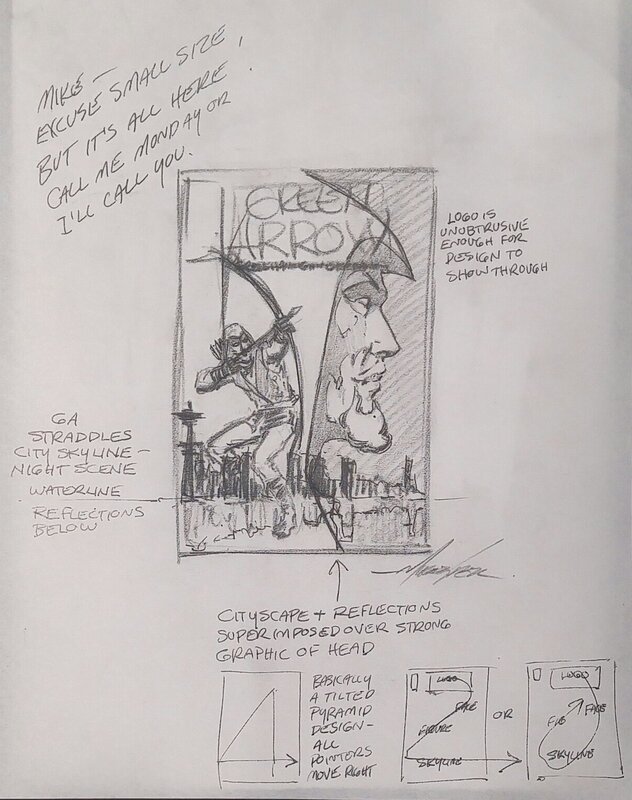 MIKE —
EXCUSE SMALL SIZE,
BUT IT'S ALL HERE.
CALL ME MONDAY OR
I'LL CALL YOU.
GREEN
ARROW
LOGO IS
UNOBTRUSIVE
ENOUGH FOR
DESIGN TO
SHOW THROUGH
GA
STRADDLES
CITY SKYLINE —
NIGHT SCENE
WATERLINE
REFLECTIONS
BELOW
CITYSCAPE + REFLECTIONS
SUPERIMPOSED OVER STRONG
GRAPHIC OF HEAD
BASICALLY
A TILTED
PYRAMID
DESIGN —
ALL
POINTERS
MOVE RIGHT
LOGO
FACE
FIGURE
SKYLINE
OR
LOGO
FIG FACE
SKYLINE